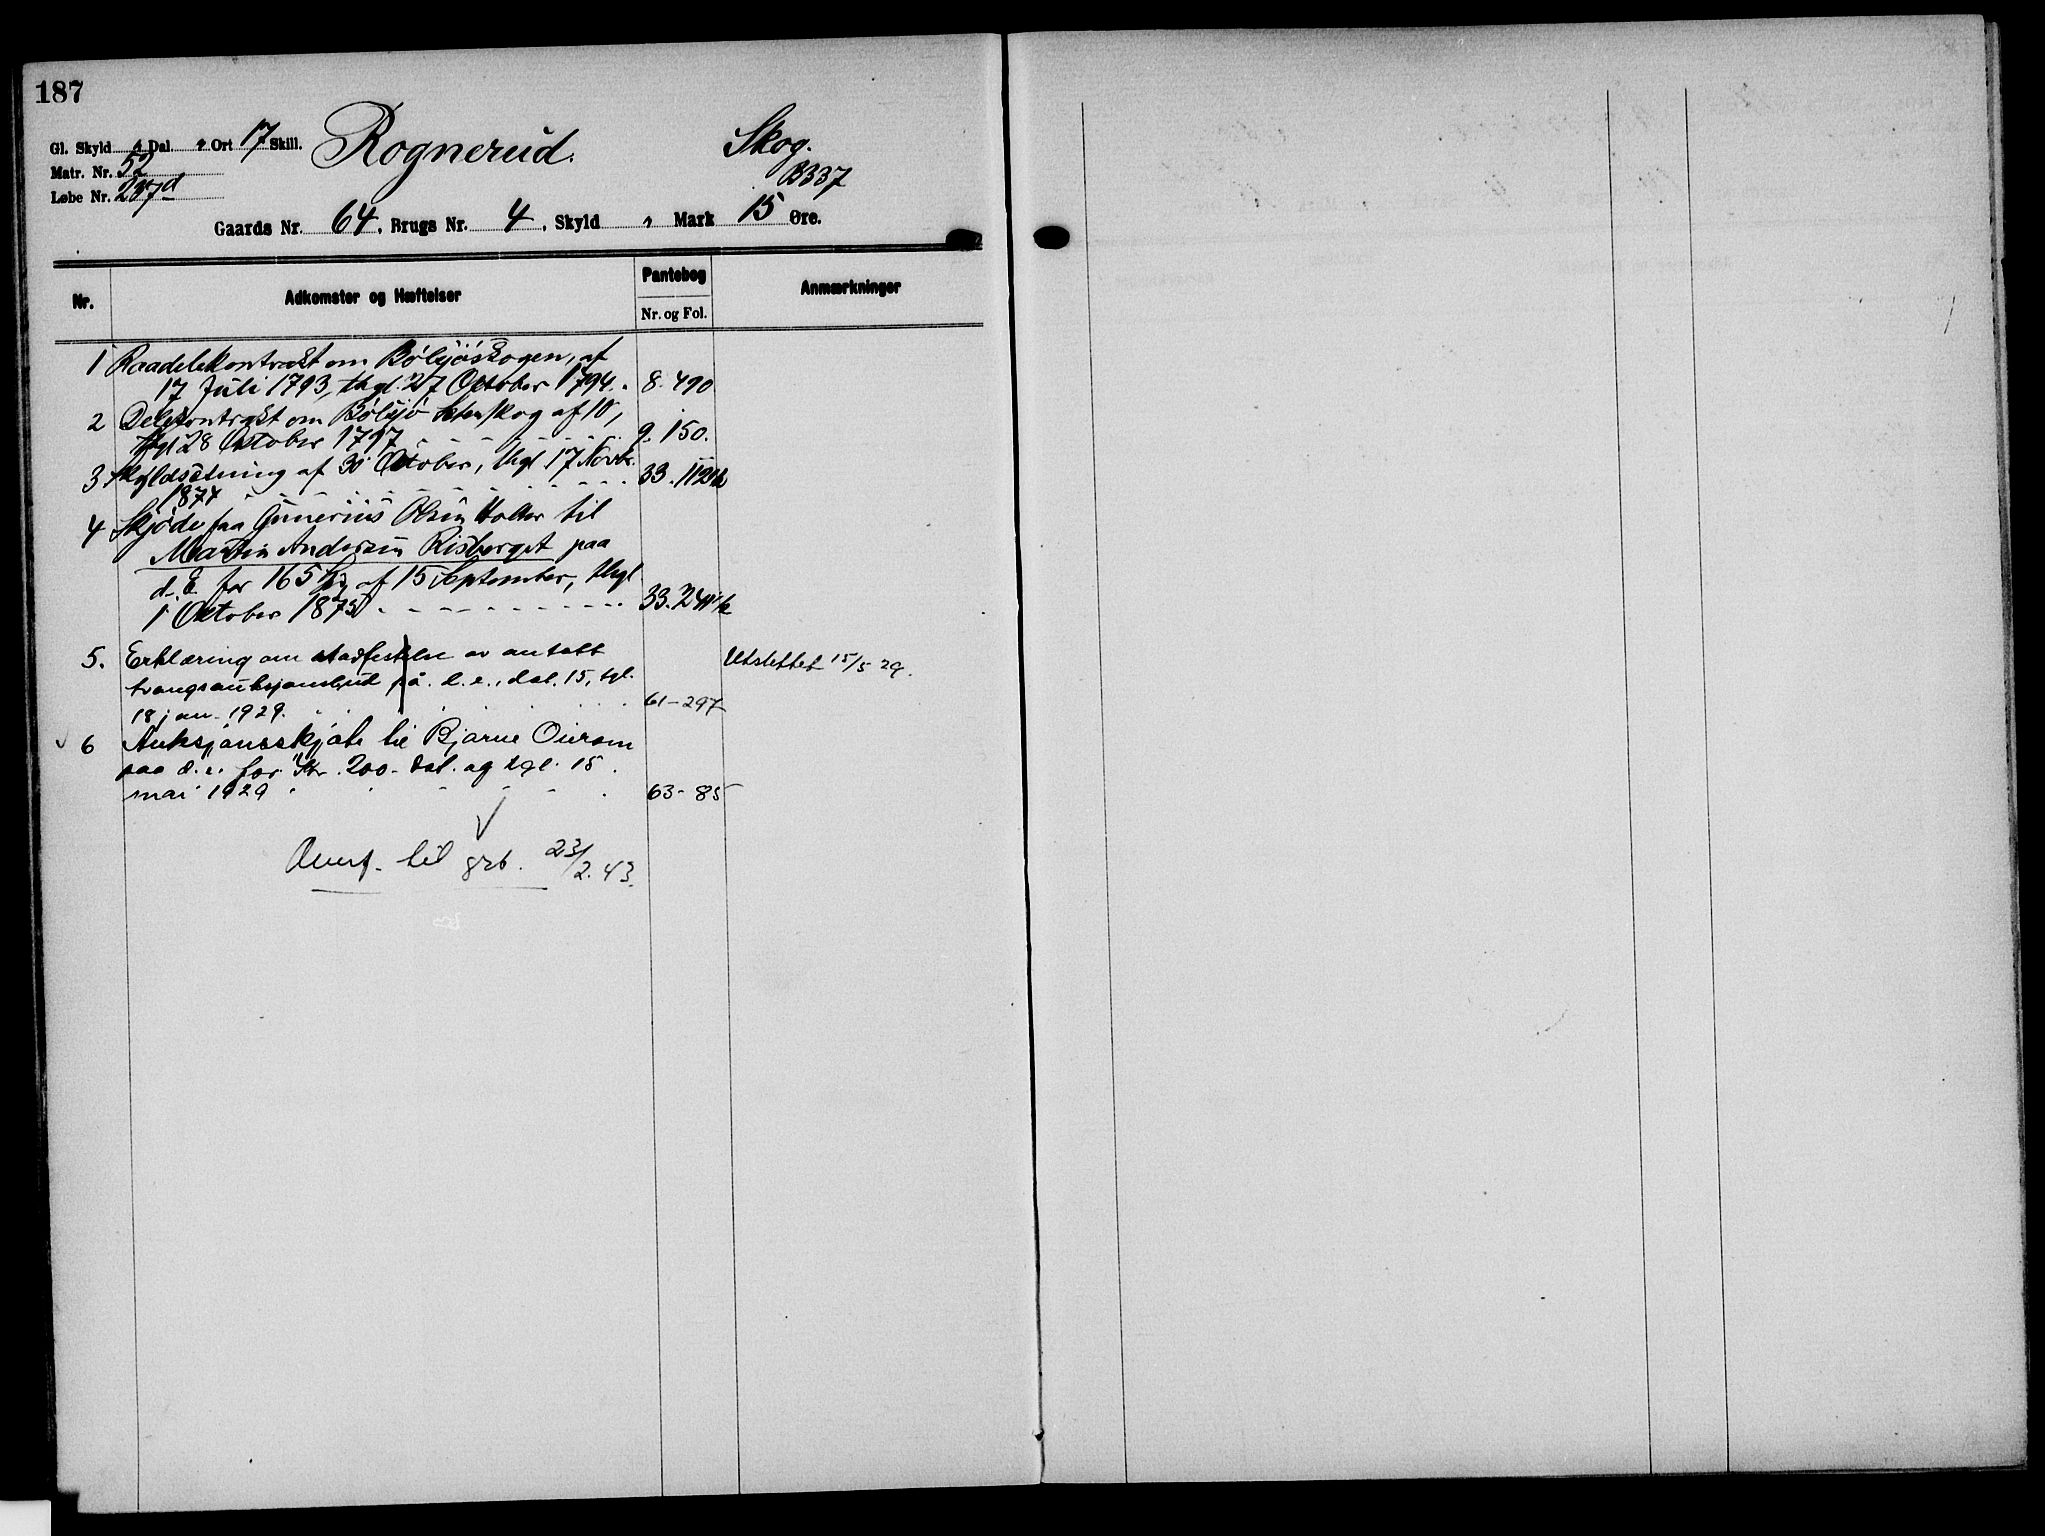 187
Gl. Skyld " Dal. " Ort 17 Skill. Rognerud. Skog.
Matr. Nr. 52 B337
Løbe Nr. 237d
Gaards Nr. 64, Brugs Nr. 4, Skyld " Mark 15 Øre.
Nr. Adkomster og Hæftelser Pantebog Anmærkninger
Nr. og Fol.
1 Raadelekontrakt om Bølsjøskogen, af
17 Juli 1793, thgl. 27 Oktober 1794. 8. 490
2 Delekontrakt om Bølsjø af 10,
thgl 28 Oktober 1797 9. 150.
3 Skyldsætning af 30 Oktober, thgl 17 Novbr.
1874 33. 112
4 Skjøde fra Gunerius Olsen Holter til
Martin Andersen Risberget paa
d. E. for 165 af 15 September, thgl
1 Oktober 1875 33. 241
5. Erklæring om stadfestelse av antatt
tvangsauksjonsbud på d. e., dat. 15, tgl.
18 jan. 1929. 61-297 Utslettet 15/5 29.
6 Auksjonsskjøte til Bjarne Ourom
paa d. e. for Kr. 200.- dat. og tgl. 15
mai 1929 63-85
Overf. til grb. 23/2.43.